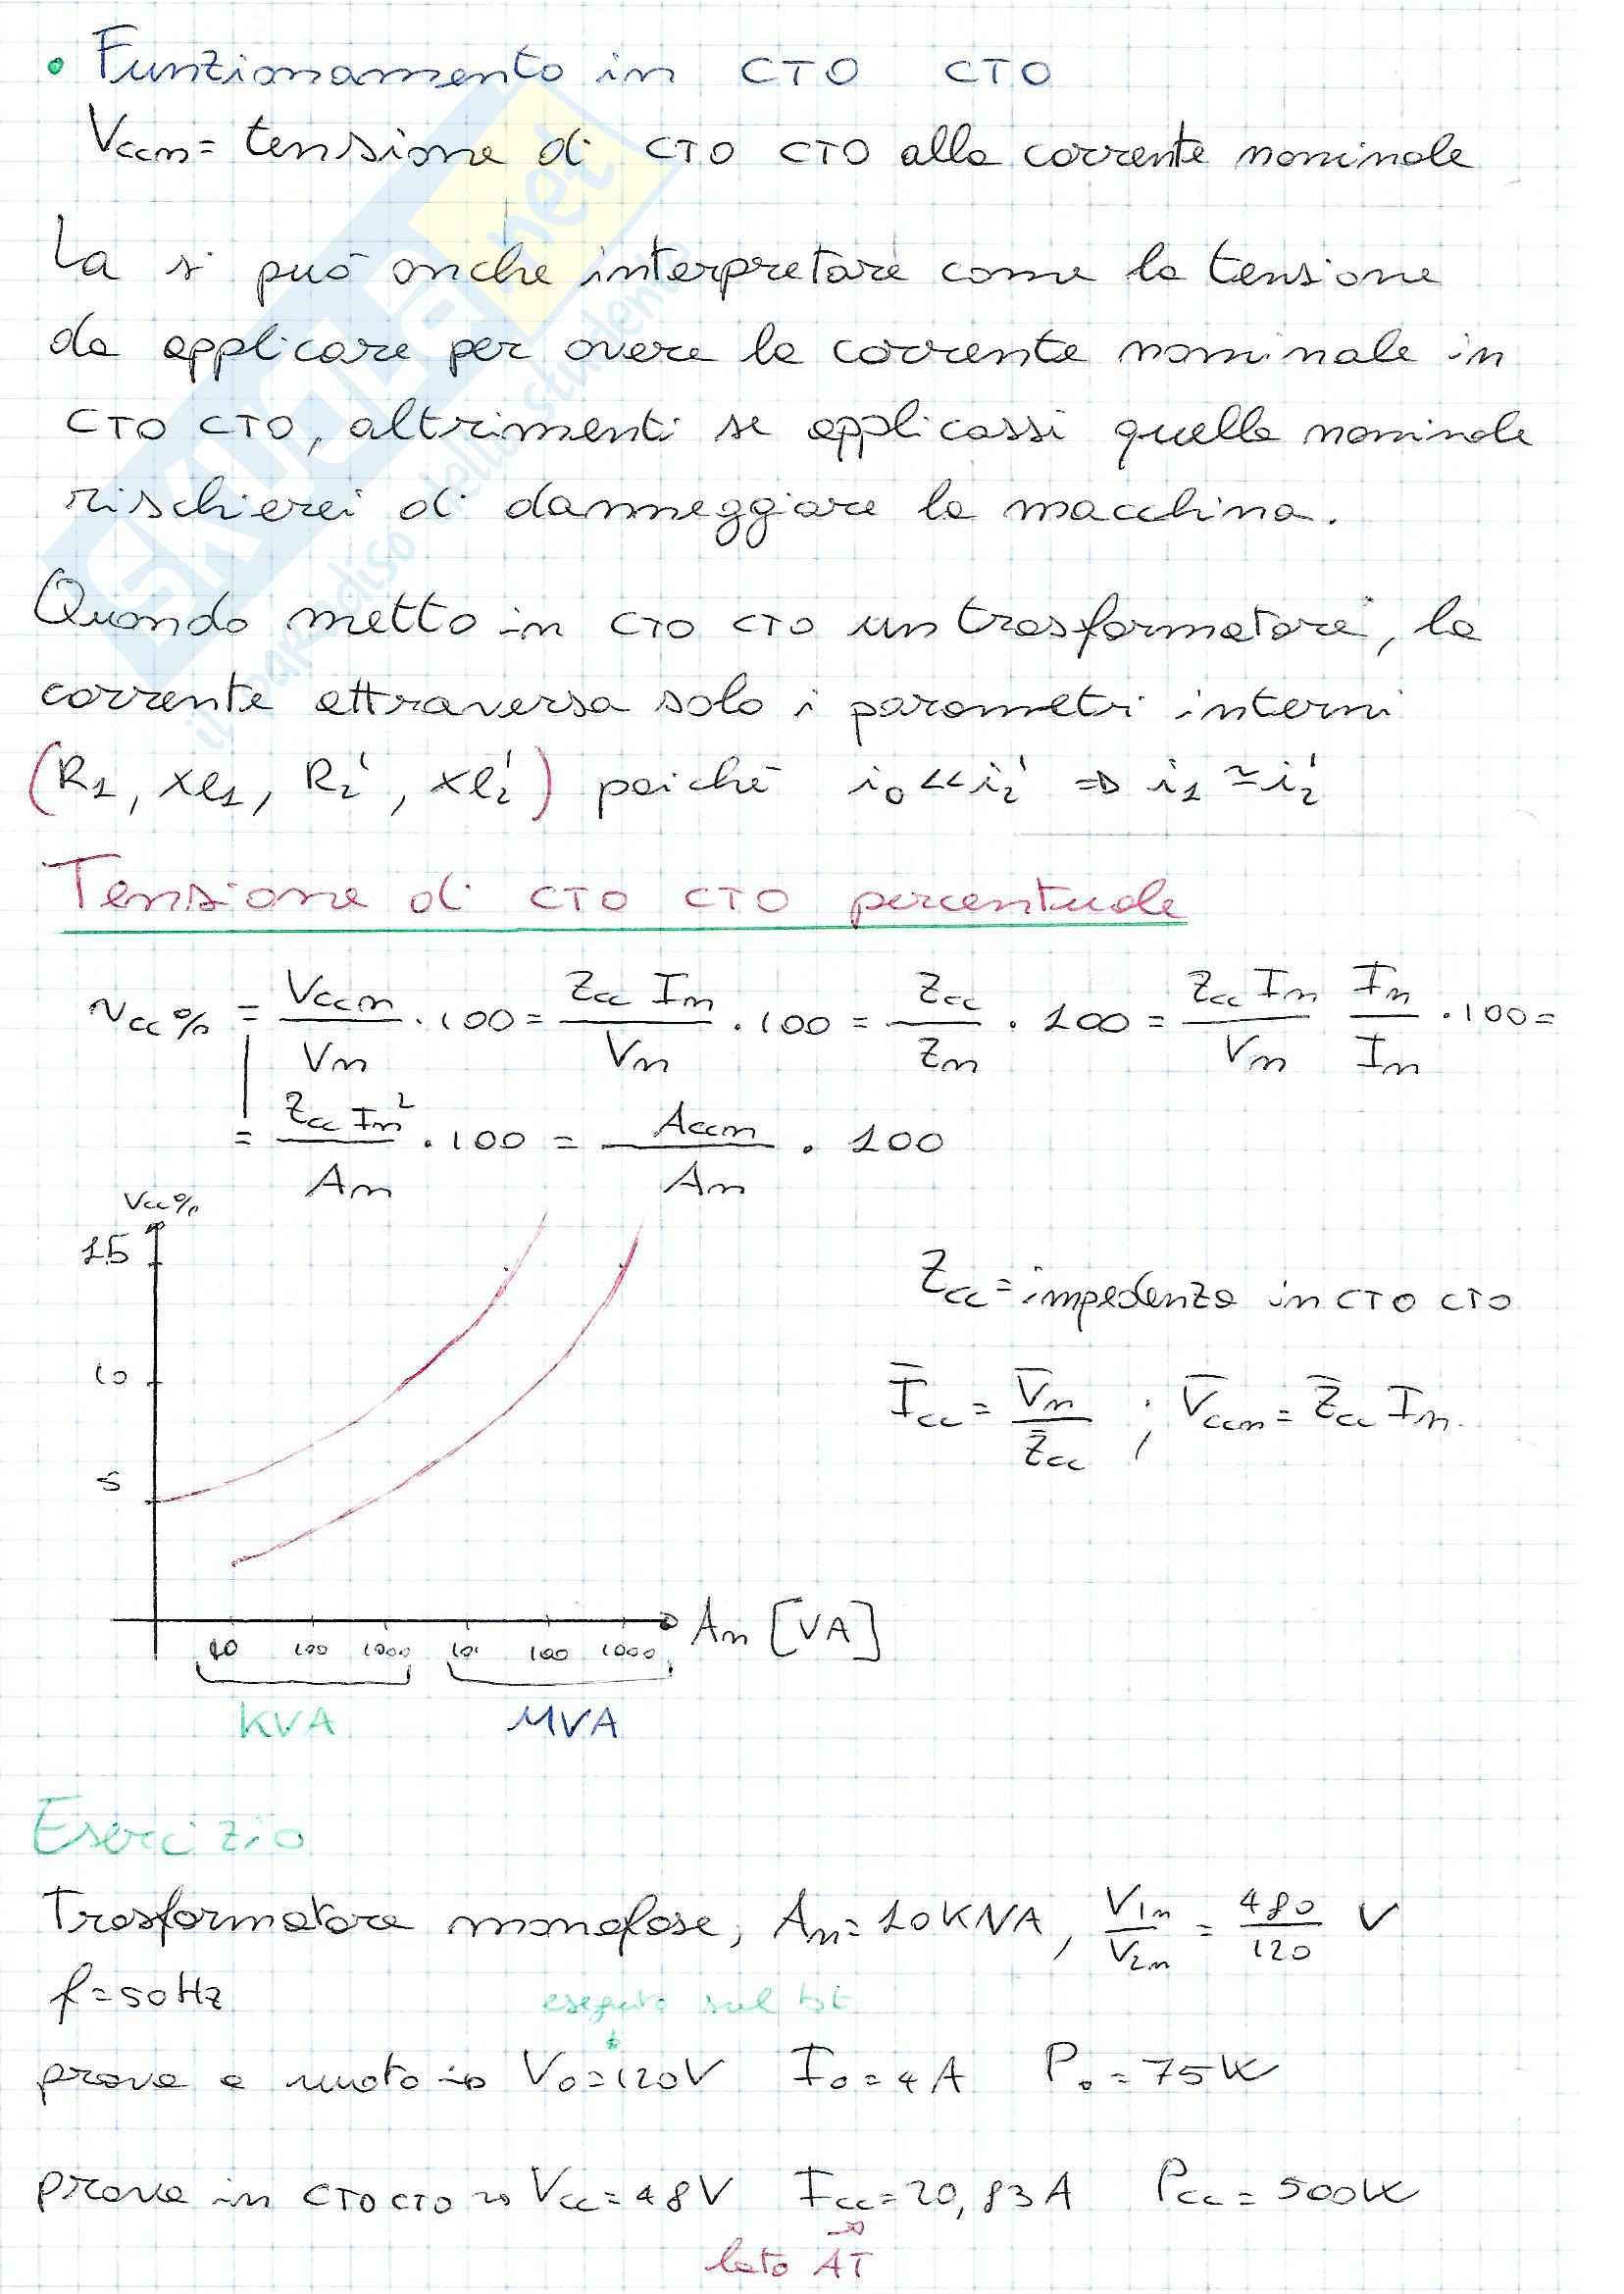 • Funzionamento in CTO CTO
Vccn = tensione di CTO CTO alla corrente nominale
La si può anche interpretare come la tensione
da applicare per avere la corrente nominale in
CTO CTO, altrimenti se applicassi quella nominale
rischierei di danneggiare la macchina.
Quando metto in CTO CTO un trasformatore, la
corrente attraversa solo i parametri interni
(R1, xl1, R2', xl2') poichè i0 << i2' => i1 ≃ i2'
Tensione di CTO CTO percentuale
Vcc% = Vccn/Vn · 100 = Zcc In/Vn · 100 = Zcc/Zn · 100 = Zcc In/Vn In/In · 100 =
= Zcc In²/An · 100 = Accn/An · 100
Vcc%
15
10
5
10 100 1000 10 100 1000 An [VA]
KVA MVA
Zcc = impedenza in CTO CTO
Īcc = V̄n/Z̄cc ; V̄ccn = Z̄cc In
Esercizio
Trasformatore monofase, An = 10 KVA, V1n/V2n = 480/120 V
f = 50 Hz
prova a vuoto → V0 = 120V I0 = 4A P0 = 75W
prova in CTO CTO → Vcc = 48V Icc = 20,83A Pcc = 500W
lato AT
SKUOLA.net
il paradiso dello studente